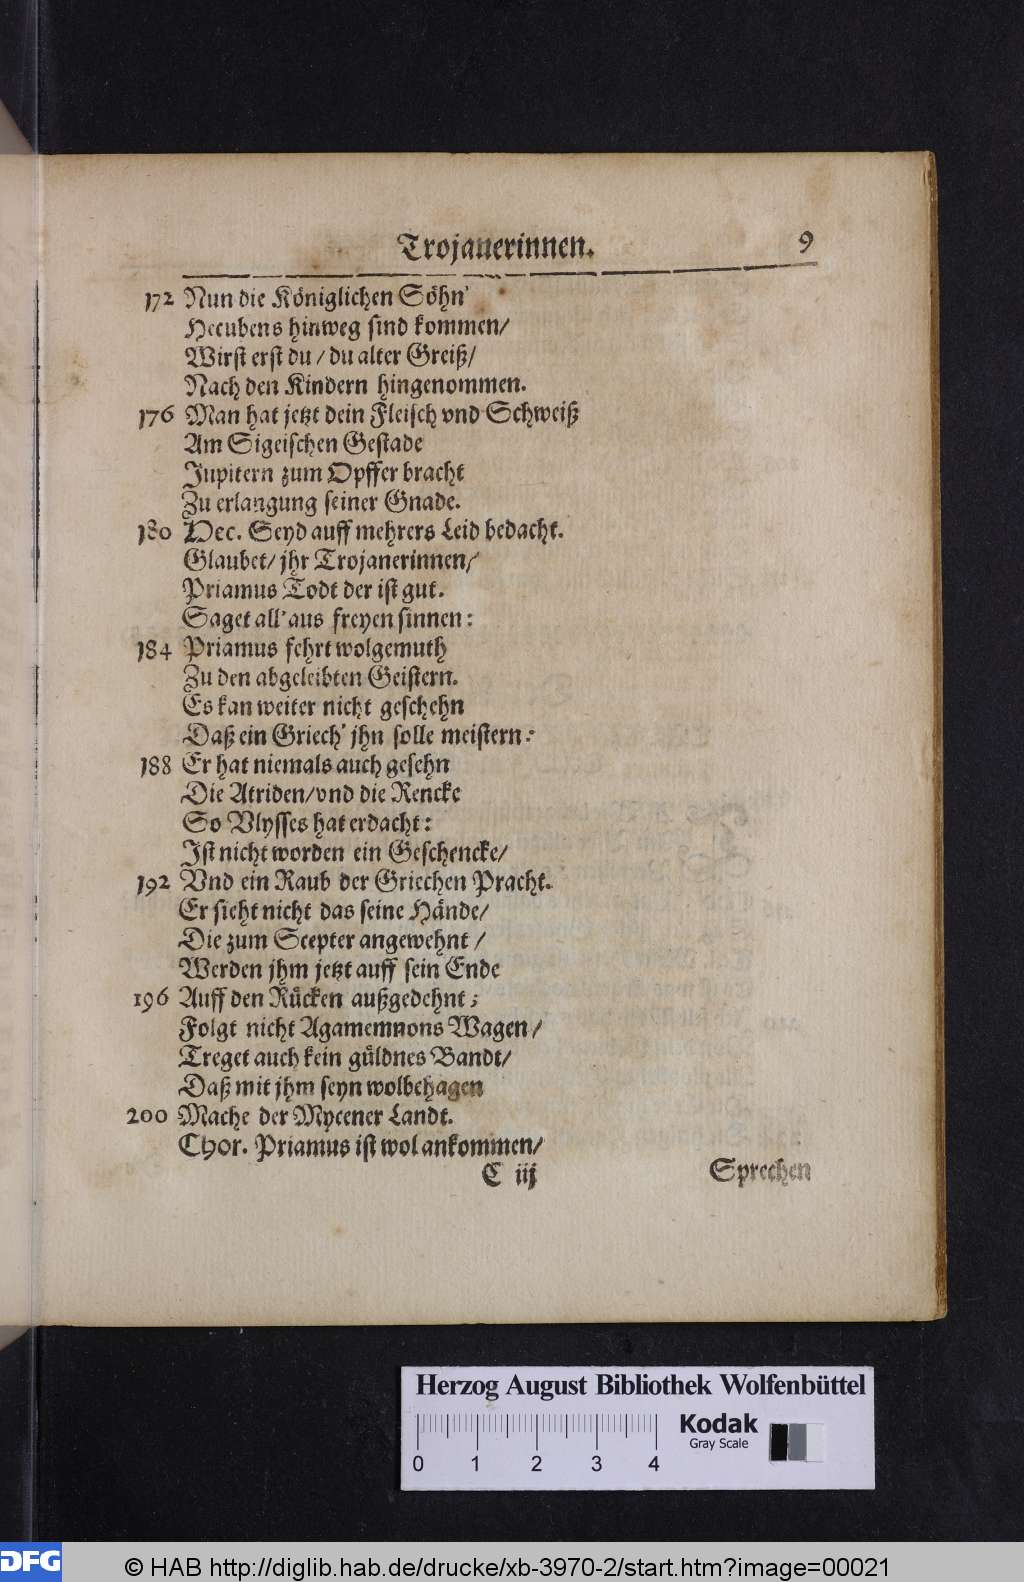 Trojanerinnen. 9
172 Nun die Königlichen Söhn'
Hecubens hinweg sind kommen/
Wirst erst du/ du alter Greiß/
Nach den Kindern hingenommen.
176 Man hat jetzt dein Fleisch vnd Schweiß
Am Sigeischen Gestade
Jupitern zum Opffer bracht
Zu erlangung seiner Gnade.
180 Hec. Seyd auff mehrers Leid bedacht.
Glaubet/ jhr Trojanerinnen/
Priamus Todt der ist gut.
Saget all' aus freyen sinnen:
184 Priamus fehrt wolgemuth
Zu den abgeleibten Geistern.
Es kan weiter nicht geschehn
Daß ein Griech' jhn solle meistern:
188 Er hat niemals auch gesehn
Die Atriden/ vnd die Rencke
So Vlysses hat erdacht:
Ist nicht worden ein Geschencke/
192 Vnd ein Raub der Griechen Pracht.
Er sieht nicht das seine Hände/
Die zum Scepter angewehnt/
Werden jhm jetzt auff sein Ende
196 Auff den Rücken außgedehnt;
Folgt nicht Agamemnons Wagen/
Treget auch kein güldnes Bandt/
Daß mit jhm seyn wolbehagen
200 Mache der Mycener Landt.
Chor. Priamus ist wol ankommen/
C iij Sprechen
Herzog August Bibliothek Wolfenbüttel
Kodak
Gray Scale
0 1 2 3 4
DFG © HAB http://diglib.hab.de/drucke/xb-3970-2/start.htm?image=00021